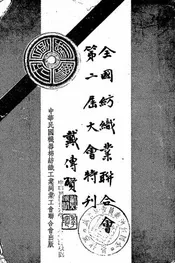 全國紡織業聯合會
第二屆大會特刊
戴傳賢
中華民國機器棉紡織工業同業公會聯合會出版